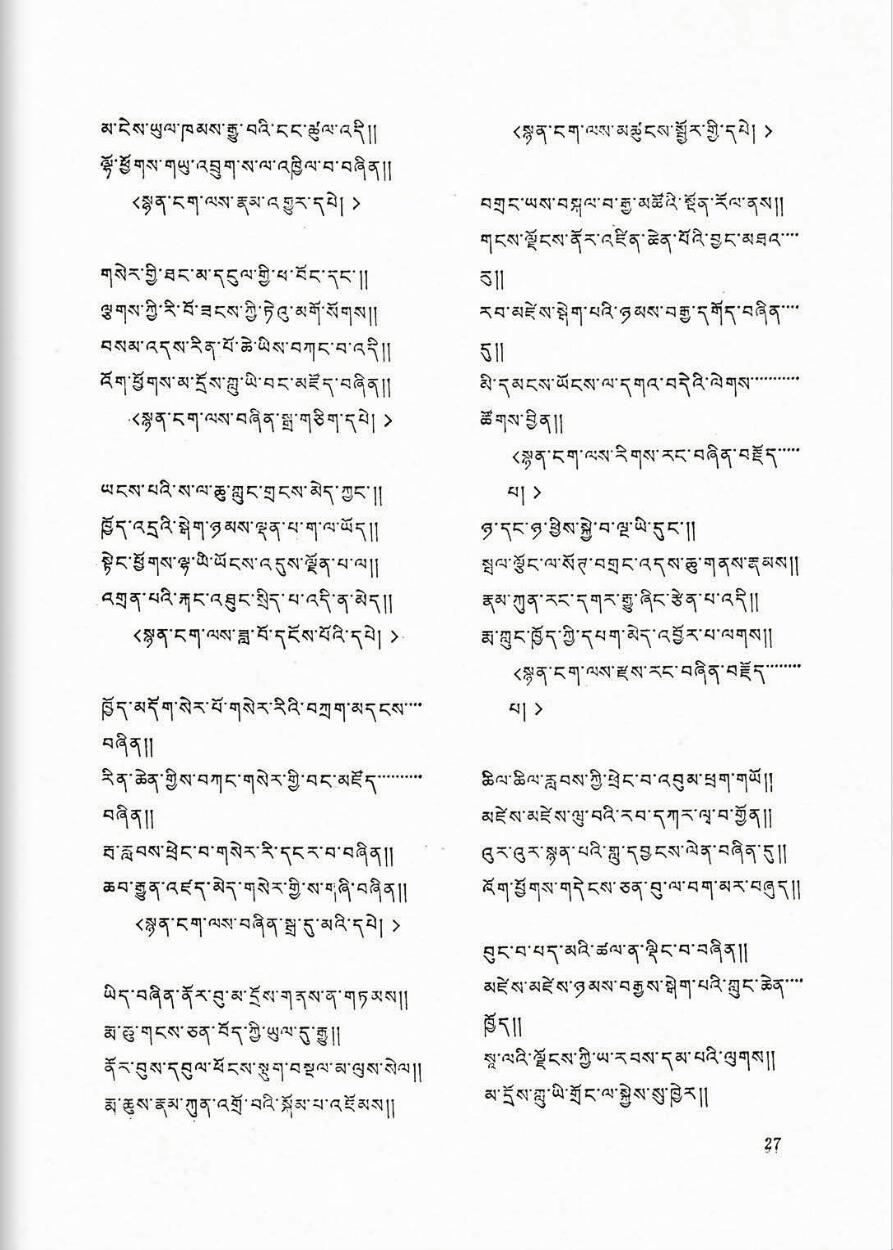 མ་ངེས་ཡུལ་ཁམས་རྒྱུ་བའི་ངང་ཚུལ་འདི།།
ལྷོ་ཕྱོགས་གཡུ་འབྲུག་ས་ལ་འཁྱིལ་བ་བཞིན།།
<སྙན་ངག་ལས་རྣམ་འགྱུར་དཔེ། >
གསེར་གྱི་ཐང་མ་དངུལ་གྱི་ཕ་བོང་དང་།།
ལྕགས་ཀྱི་རི་བོ་ཟངས་ཀྱི་ཏེའུ་མགོ་སོགས།།
བསམ་འདས་རིན་པོ་ཆེ་ཡིས་བཀང་བ་འདི།།
འོག་ཕྱོགས་མ་དྲོས་ཀླུ་ཡི་བང་མཛོད་བཞིན།།
<སྙན་ངག་ལས་བཞིན་སྒྲ་གཅིག་དཔེ། >
ཡངས་པའི་ས་ལ་ཆུ་ཀླུང་གྲངས་མེད་ཀྱང་།།
ཁྱོད་འདྲའི་སྒེག་ཉམས་ལྡན་པ་ག་ལ་ཡོད།།
སྟེང་ཕྱོགས་ལྷ་ཡི་ཡོངས་འདུས་ལྗོན་པ་ལ།།
འགྲན་པའི་རྐང་འཐུང་སྲིད་པ་འདི་ན་མེད།།
<སྙན་ངག་ལས་ཟླ་བོ་དངོས་པོའི་དཔེ། >
ཁྱོད་མདོག་སེར་པོ་གསེར་རིའི་བཀྲག་མདངས་····
བཞིན།།
རིན་ཆེན་གྱིས་བཀང་གསེར་གྱི་བང་མཛོད་·········
བཞིན།།
བ་རླབས་ཕྲེང་བ་གསེར་རི་དངར་བ་བཞིན།།
ཆབ་རྒྱུན་འཛད་མེད་གསེར་གྱི་ས་གཞི་བཞིན།།
<སྙན་ངག་ལས་བཞིན་སྒྲ་དུ་མའི་དཔེ། >
ཡིད་བཞིན་ནོར་བུ་མ་དྲོས་གནས་ན་གཏམས།།
རྨ་ཆུ་གངས་ཅན་བོད་ཀྱི་ཡུལ་དུ་རྒྱུ།།
ནོར་བུས་དབུལ་ཕོངས་སྡུག་བསྔལ་མ་ལུས་སེལ།།
རྨ་ཆུས་རྣམ་ཀུན་འགྲོ་བའི་སྐོམ་པ་འཇོམས།།
<སྙན་ངག་ལས་མཚུངས་སྦྱོར་གྱི་དཔེ། >
བགྲང་ཡས་བསྐལ་བ་རྒྱ་མཚོའི་སྔོན་རོལ་ནས།།
གངས་ལྗོངས་ནོར་འཛིན་ཆེན་པོའི་བྱང་མཐའ་····
རུ།།
རབ་མཛེས་སྒེག་པའི་ཉམས་བརྒྱ་དགོད་བཞིན་····
དུ།།
མི་དམངས་ཡོངས་ལ་དགའ་བདེའི་ལེགས་··········
ཚོགས་བྱིན།།
<སྙན་ངག་ལས་རིགས་རང་བཞིན་བརྗོད་·····
པ། >
ཉ་དང་ཉ་ཕྱིས་སྐྱེ་བ་ལྔ་ཡི་དུང་།།
སྦལ་ལྕོང་ལ་སོགས་བགྲང་འདས་ཆུ་གནས་རྣམས།།
རྣམ་ཀུན་རང་དགར་རྒྱུ་ཞིང་རྩེན་པ་འདི།།
རྨ་ཀླུང་ཁྱོད་ཀྱི་དཔག་མེད་འབྱོར་པ་ལགས།།
<སྙན་ངག་ལས་རྫས་རང་བཞིན་བརྗོད་········
པ། >
ཆིལ་ཆིལ་རླབས་ཀྱི་ཕྲེང་བ་འབུམ་ཕྲག་གཡོ།།
མཛེས་མཛེས་ལྦུ་བའི་རབ་དཀར་ལྭ་བ་གྱོན།།
འུར་འུར་སྙན་པའི་གླུ་དབྱངས་ལེན་བཞིན་དུ།།
འོག་ཕྱོགས་གདེངས་ཅན་བུ་ལ་བག་མར་བཞུད།།
བུང་བ་པད་མའི་ཚལ་ན་ལྡིང་བ་བཞིན།།
མཛེས་མཛེས་ཉམས་བརྒྱས་སྒེག་པའི་ཀླུང་ཆེན་····
ཁྱོད།།
སཱ་ལའི་ལྗོངས་ཀྱི་ཡ་རབས་དམ་པའི་ལུགས།།
མ་དྲོས་ཀླུ་ཡི་གྲོང་ལ་སྐྱེས་སུ་ཁྱེར།།
27